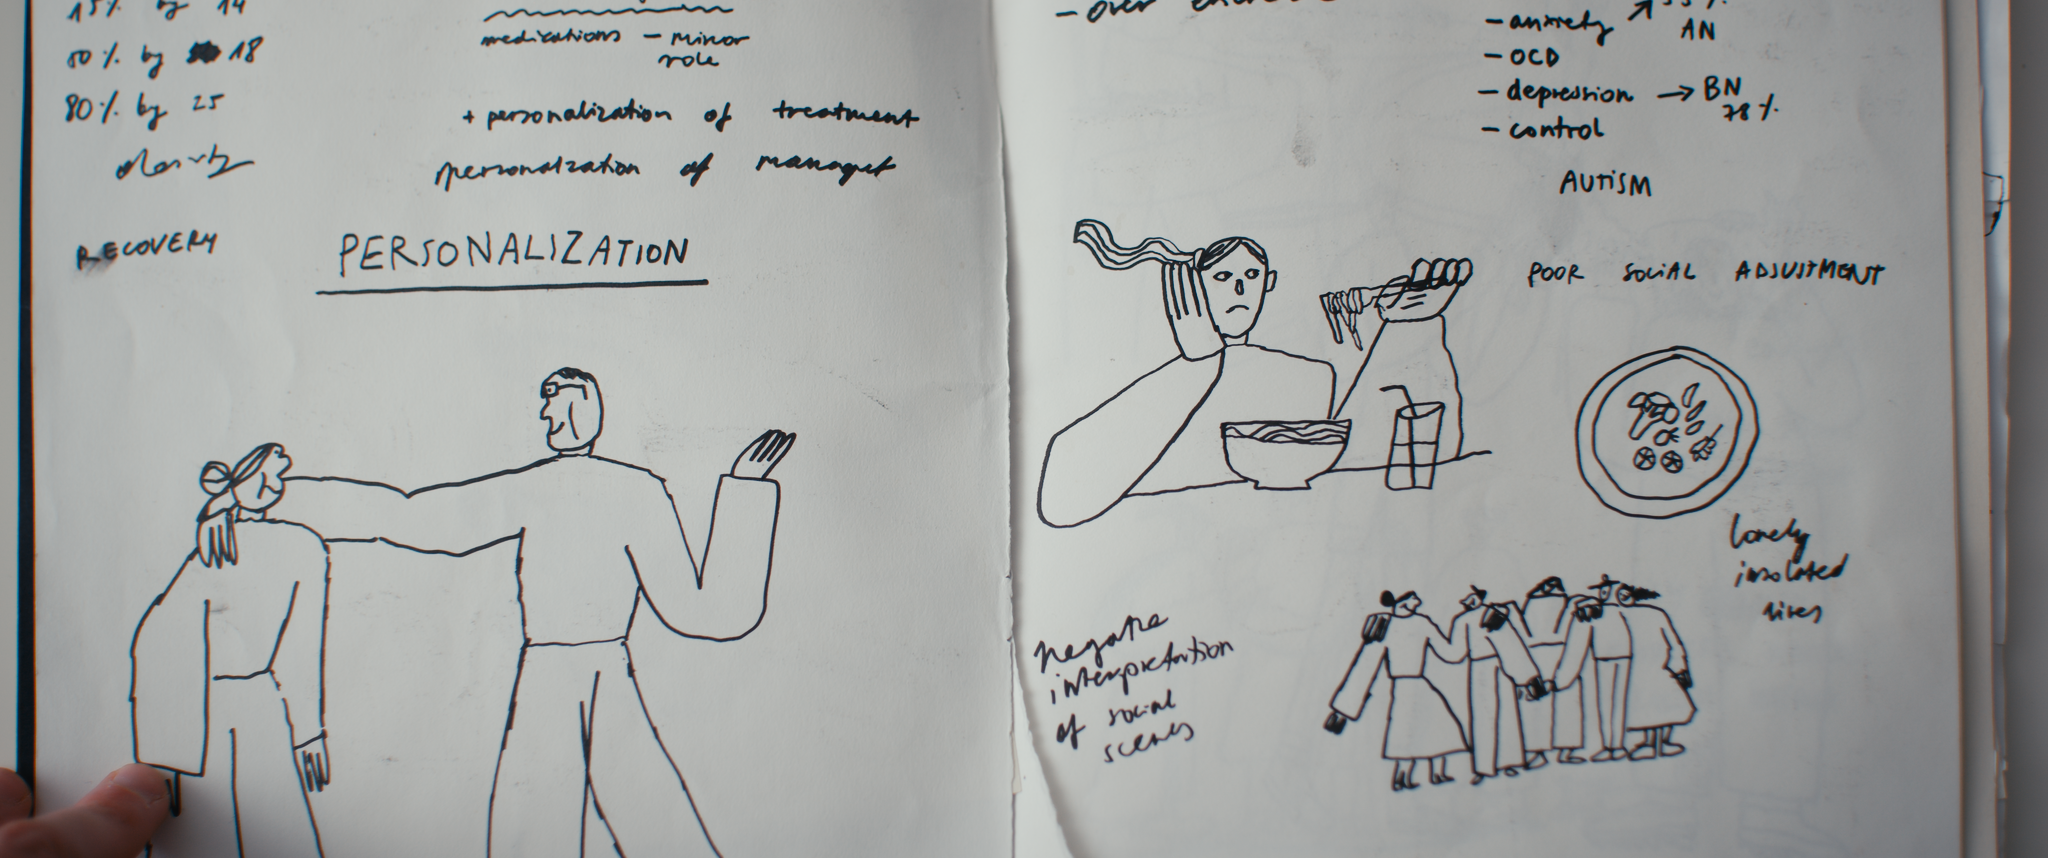 15% by 14
50% by 18
80% by 25
RECOVERY
medications - minor
role
+ personalization of treatment
personalization of
PERSONALIZATION
- over
- anxiety ↗
AN
- OCD
- depression → BN
78%
- control
AUTISM
POOR SOCIAL ADJUSTMENT
lonely
insolated
lives
negative
interpretation
of social
scenes